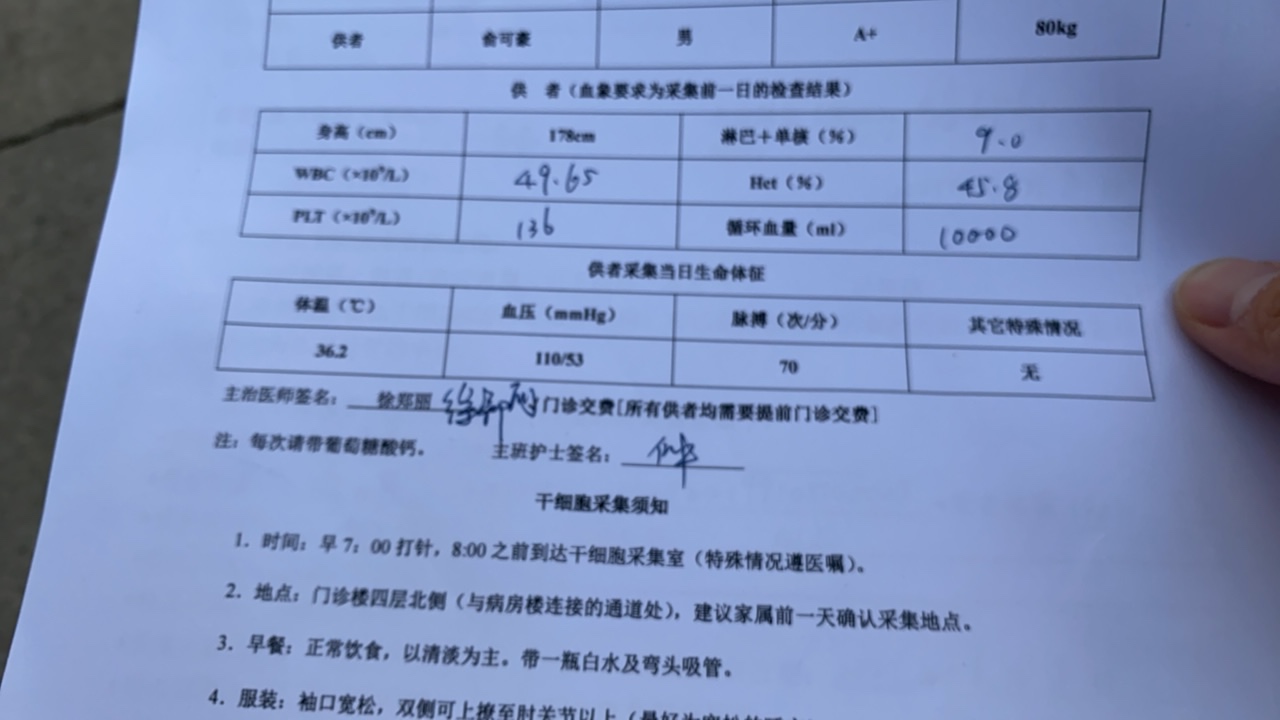 供者 俞可豪 男 A+ 80kg
供 者（血象要求为采集前一日的检查结果）
身高（cm） 178cm 淋巴+单核（%） 9.0
WBC（×10⁹/L） 49.65 Hct（%） 45.8
PLT（×10⁹/L） 136 循环血量（ml） 10000
供者采集当日生命体征
体温（℃） 血压（mmHg） 脉搏（次/分） 其它特殊情况
36.2 110/53 70 无
主治医师签名： 徐郑丽 徐郑丽 门诊交费[所有供者均需要提前门诊交费]
注：每次请带葡萄糖酸钙。 主班护士签名：
干细胞采集须知
1. 时间：早 7：00 打针，8:00 之前到达干细胞采集室（特殊情况遵医嘱）。
2. 地点：门诊楼四层北侧（与病房楼连接的通道处），建议家属前一天确认采集地点。
3. 早餐：正常饮食，以清淡为主。带一瓶白水及弯头吸管。
4. 服装：袖口宽松，双侧可上撩至肘关节以上（最好为宽松的